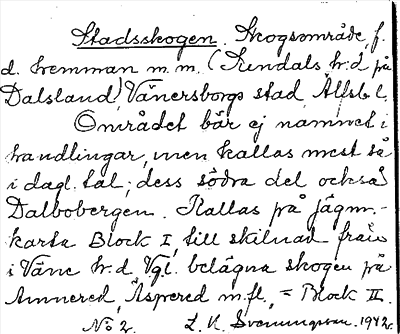 Stadsskogen. Skogsområde, f.
d. hemman m.m. (Sundals h.d. på
Dalsland) Vänersborgs stad, Älfsb. l.
Området bär ej namnet i
handlingar, men kallas mest så
i dagl. tal; dess södra del också
Dalbobergen. Kallas på jägm.-
karta Block I, till skilnad från
i Väne h.d. Vgl. belägna skogen på
Onnered, Äspered m.fl., = Block II.
No 2. L. K. Svenungson. 1942.